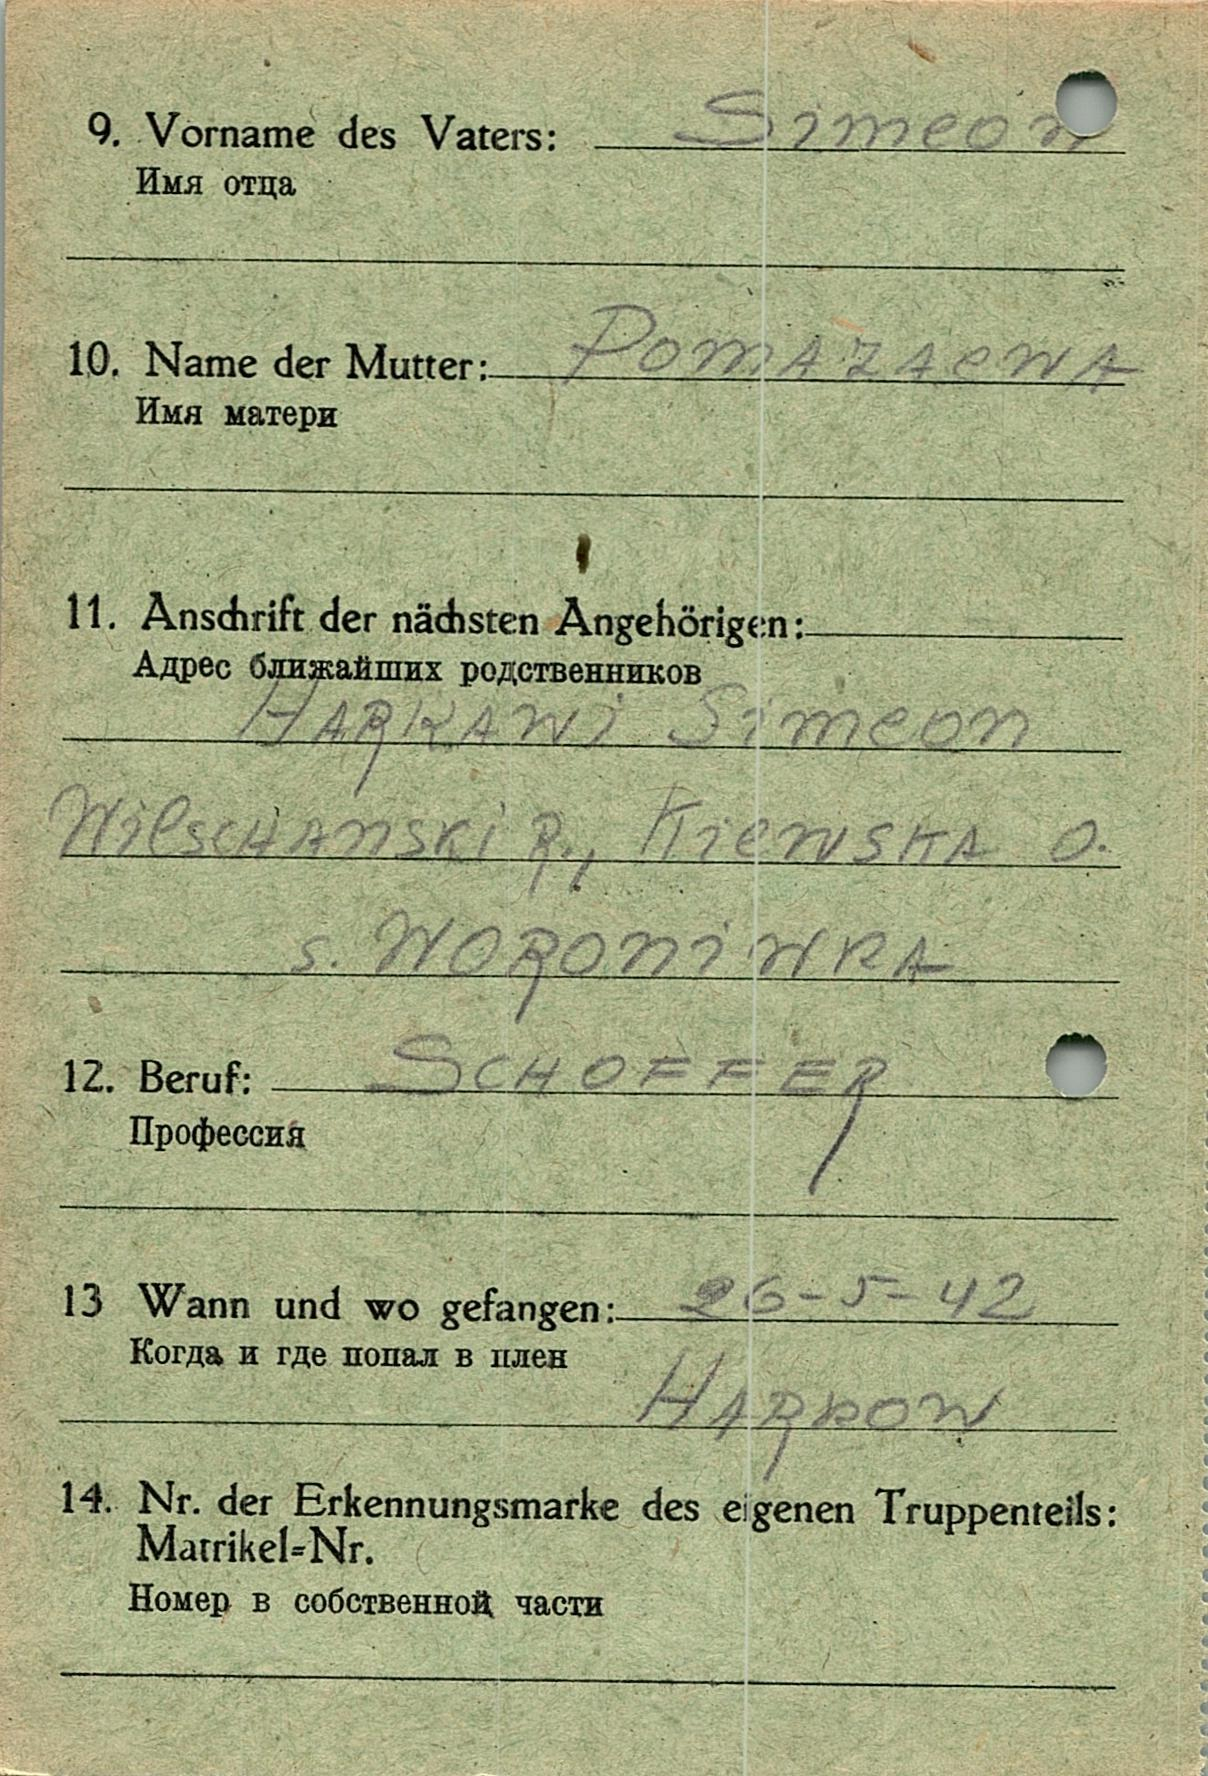 9. Vorname des Vaters: Simeon
Имя отца
10. Name der Mutter: Pomazaewa
Имя матери
11. Anschrift der nächsten Angehörigen:
Адрес ближайших родственников
Harkawi Simeon
Wilschanski R., Kiewska O.
s. Woroniwka
12. Beruf: Schoffer
Профессия
13 Wann und wo gefangen: 26-5-42
Когда и где попал в плен
Harkow
14. Nr. der Erkennungsmarke des eigenen Truppenteils:
Matrikel=Nr.
Номер в собственной части